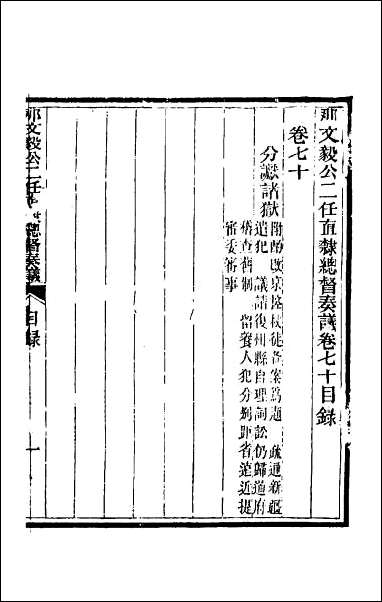 那文毅公二任直隸總督奏議卷七十目錄
卷七十
分讞諸獄
酌改京控杖徒各案爲題 疏通新疆
遣犯 議請復州縣自理詞訟仍歸道府
稽查舊制 留養人犯分別距省遠近提
審委審事
那文毅公二任 總督奏議
目錄
一